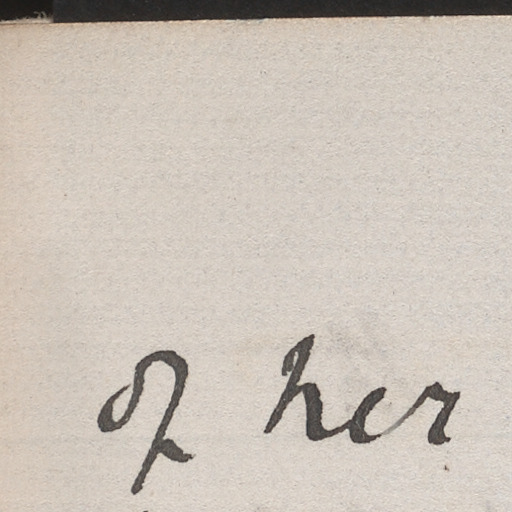 of her